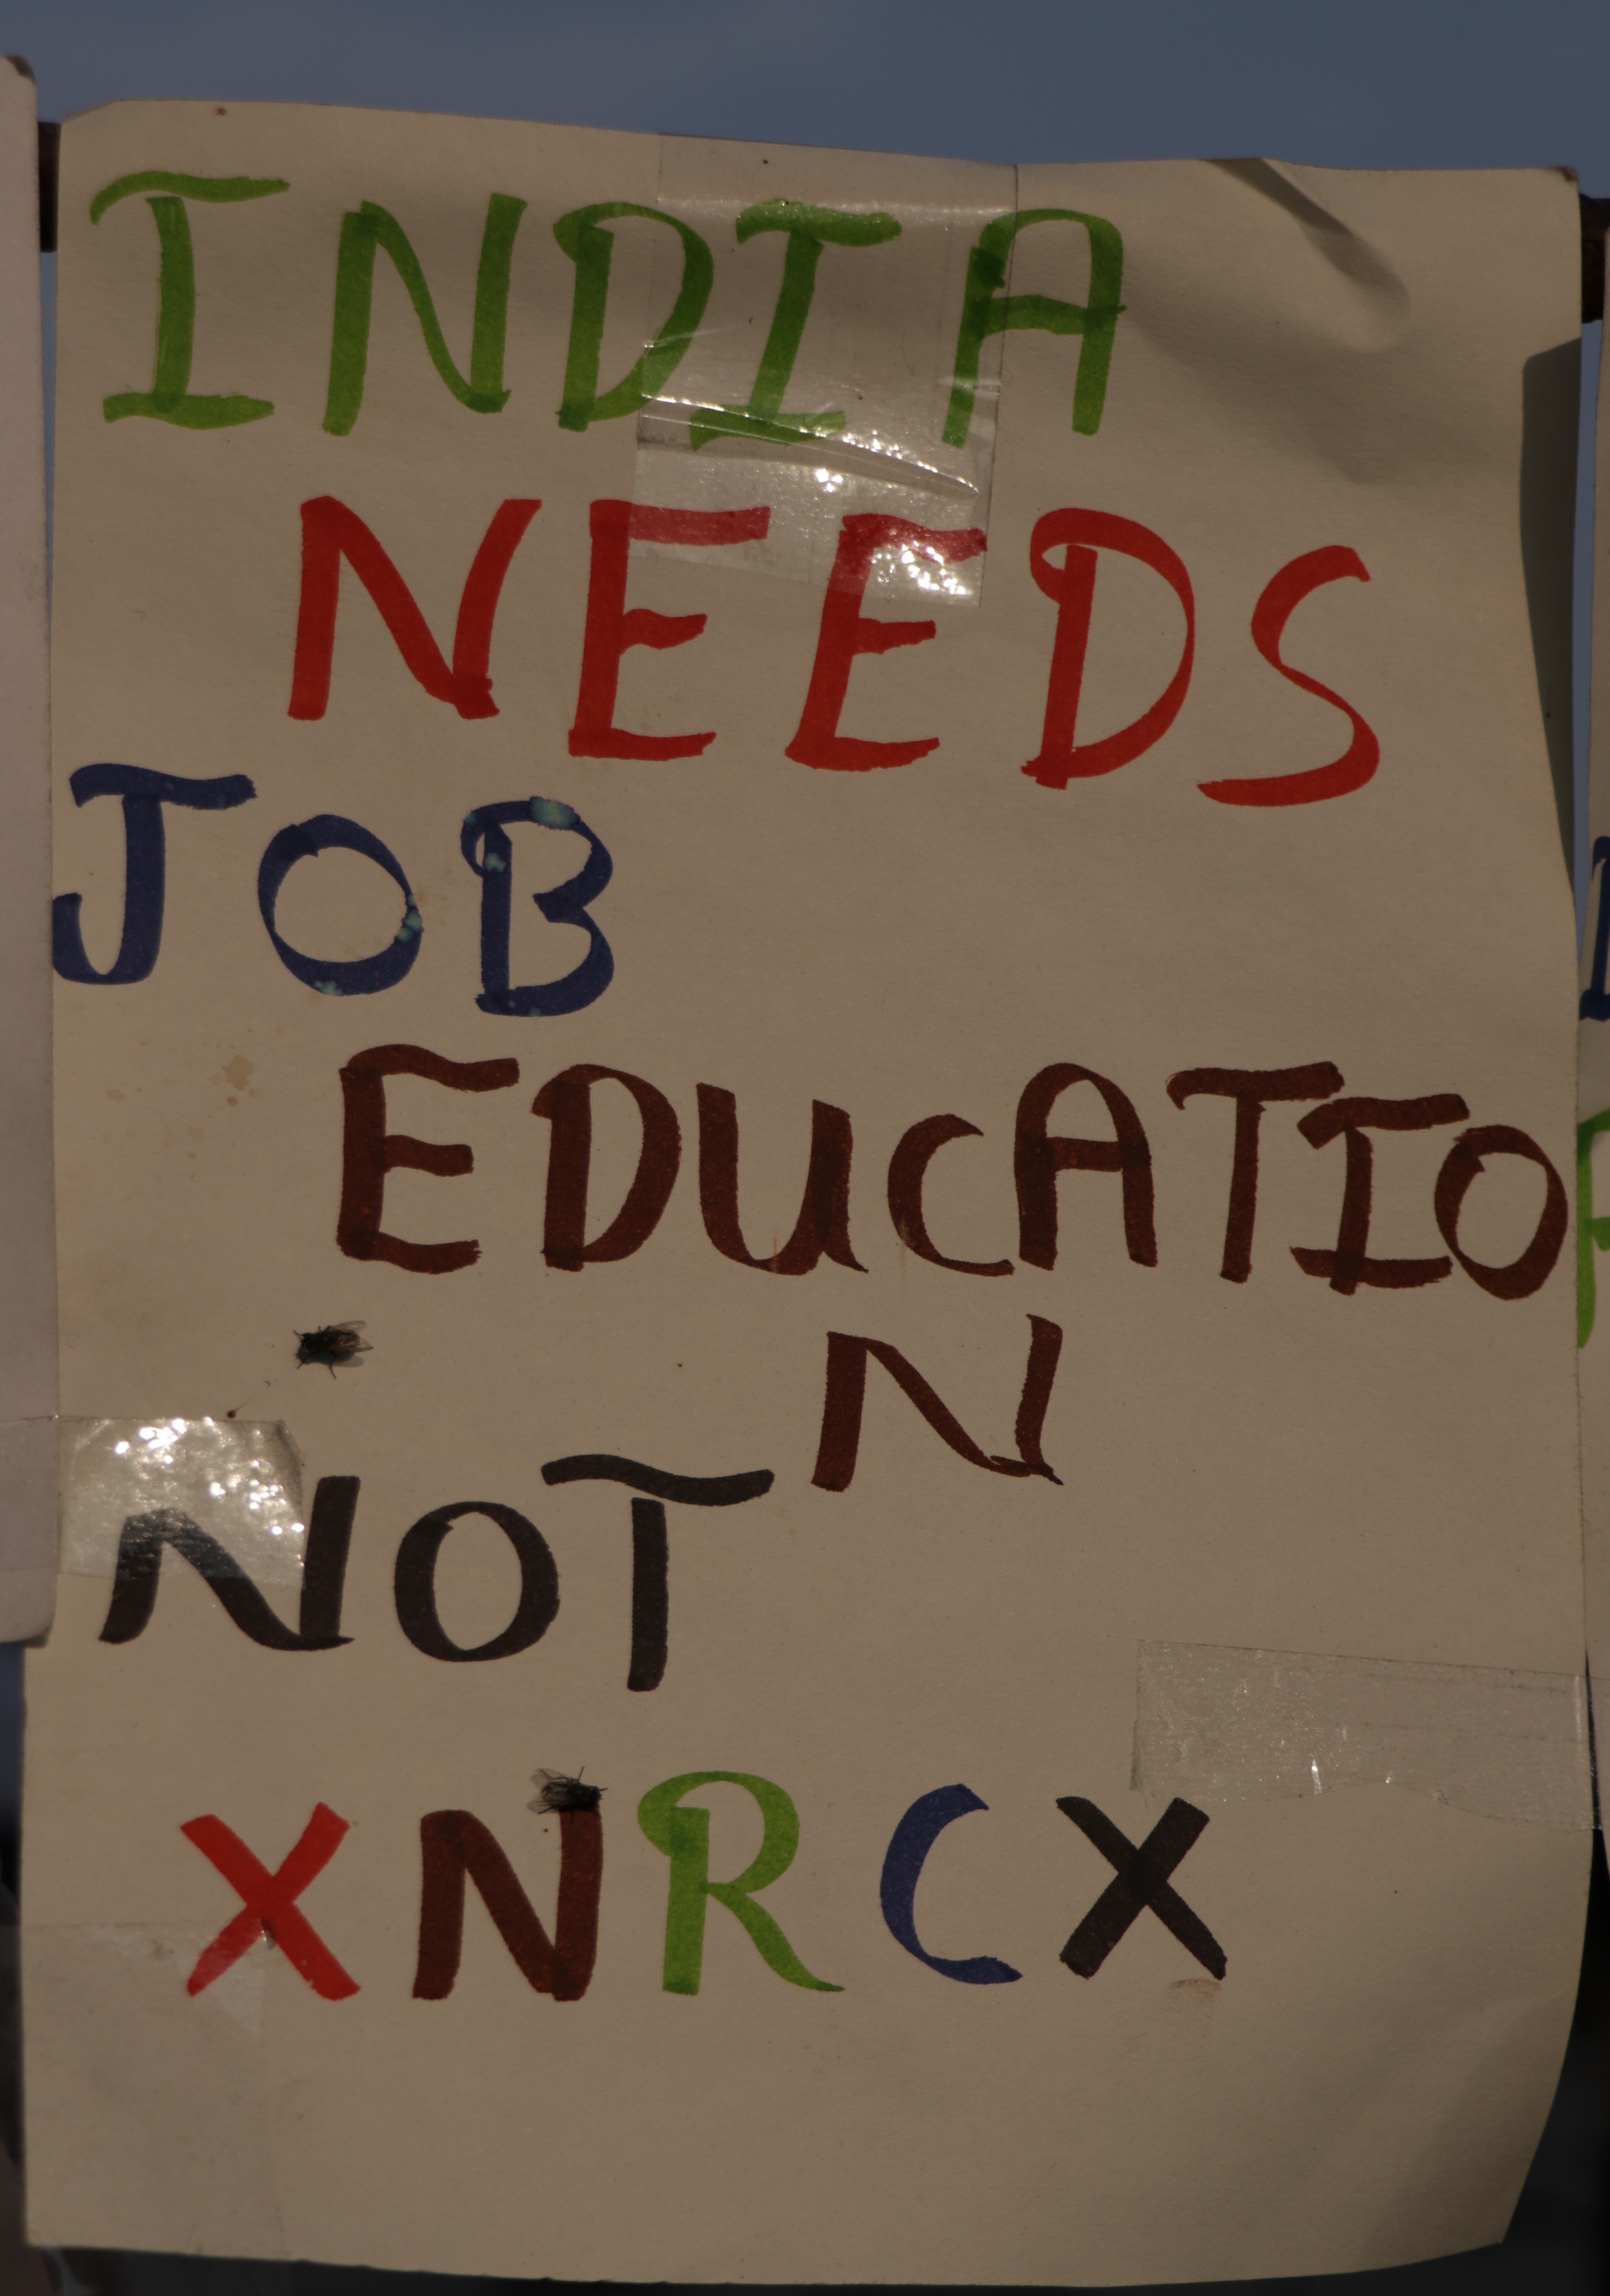 INDIA
NEEDS
JOB
EDUCATIO
N
NOT
X NRC X